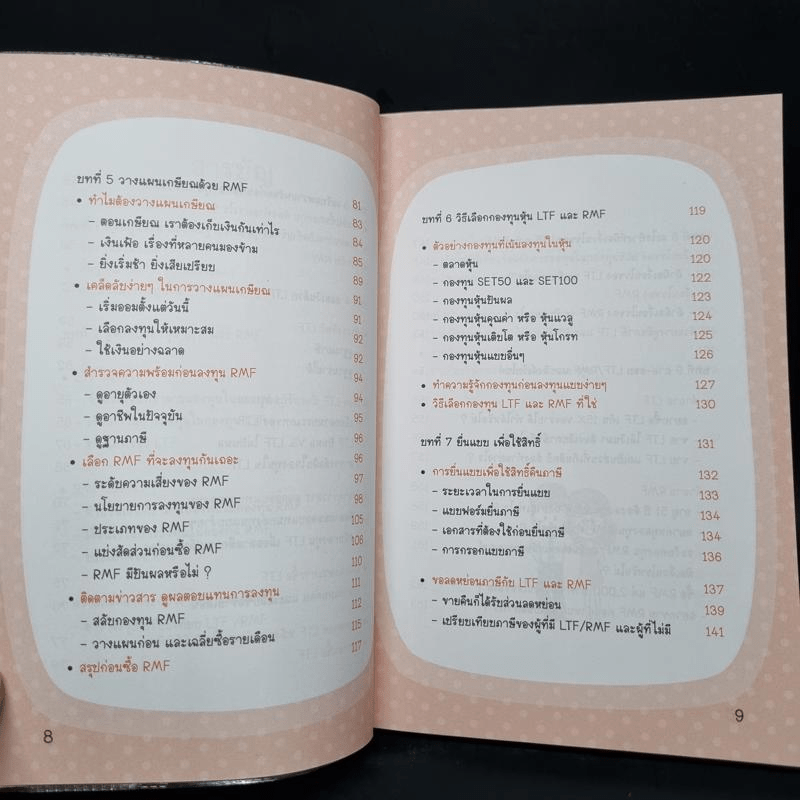 บทที่ 5 วางแผนเกษียณด้วย RMF 81
• ทำไมต้องวางแผนเกษียณ 83
– ตอนเกษียณ เราต้องเก็บเงินกันเท่าไร 84
– เงินเฟ้อ เรื่องที่หลายคนมองข้าม 85
– ยิ่งเริ่มช้า ยิ่งเสียเปรียบ 89
• เคล็ดลับง่ายๆ ในการวางแผนเกษียณ 91
– เริ่มออมตั้งแต่วันนี้ 91
– เลือกลงทุนให้เหมาะสม 92
– ใช้เงินอย่างฉลาด 92
• สำรวจความพร้อมก่อนลงทุน RMF 94
– ดูอายุตัวเอง 94
– ดูอาชีพในปัจจุบัน 95
– ดูฐานภาษี 96
• เลือก RMF ที่จะลงทุนกันเถอะ 96
– ระดับความเสี่ยงของ RMF 97
– นโยบายการลงทุนของ RMF 98
– ประเภทของ RMF 105
– แบ่งสัดส่วนก่อนซื้อ RMF 108
– RMF มีปันผลหรือไม่ ? 110
• ติดตามข่าวสาร ดูผลตอบแทนการลงทุน 111
– สลับกองทุน RMF 112
– วางแผนก่อน และเฉลี่ยซื้อรายเดือน 115
• สรุปก่อนซื้อ RMF 117
8
บทที่ 6 วิธีเลือกกองทุนหุ้น LTF และ RMF 119
• ตัวอย่างกองทุนที่เน้นลงทุนในหุ้น 120
– ตลาดหุ้น 120
– กองทุน SET50 และ SET100 122
– กองทุนหุ้นปันผล 123
– กองทุนหุ้นคุณค่า หรือ หุ้นแวลู 124
– กองทุนหุ้นเติบโต หรือ หุ้นโกรท 125
– กองทุนหุ้นแบบอื่นๆ 126
• ทำความรู้จักกองทุนก่อนลงทุนแบบง่ายๆ 127
• วิธีเลือกกองทุน LTF และ RMF ที่ใช่ 130
บทที่ 7 ยื่นแบบ เพื่อใช้สิทธิ์ 131
• การยื่นแบบเพื่อใช้สิทธิ์คืนภาษี 132
– ระยะเวลาในการยื่นแบบ 133
– แบบฟอร์มยื่นภาษี 134
– เอกสารที่ต้องใช้ก่อนยื่นภาษี 134
– การกรอกแบบภาษี 136
• ขอลดหย่อนภาษีกับ LTF และ RMF 137
– ขายคืนก็ได้รับส่วนลดหย่อน 139
– เปรียบเทียบภาษีของผู้ที่มี LTF/RMF และผู้ที่ไม่มี 141
9